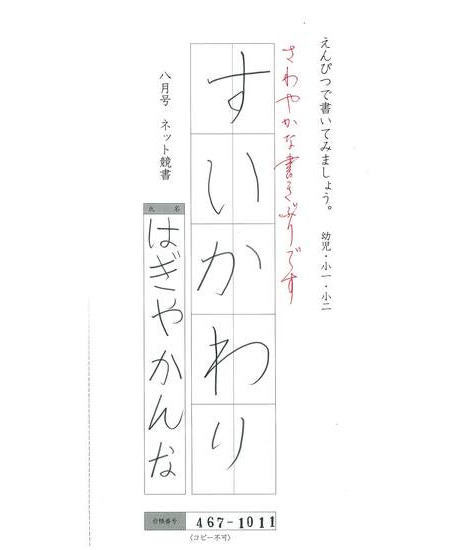 えんぴつで書いてみましょう。 幼児・小一・小二
さわやかな書きぶりです
すいかわり
八月号 ネット競書
氏名
はぎやかんな
台帳番号 467-1011
(コピー不可)